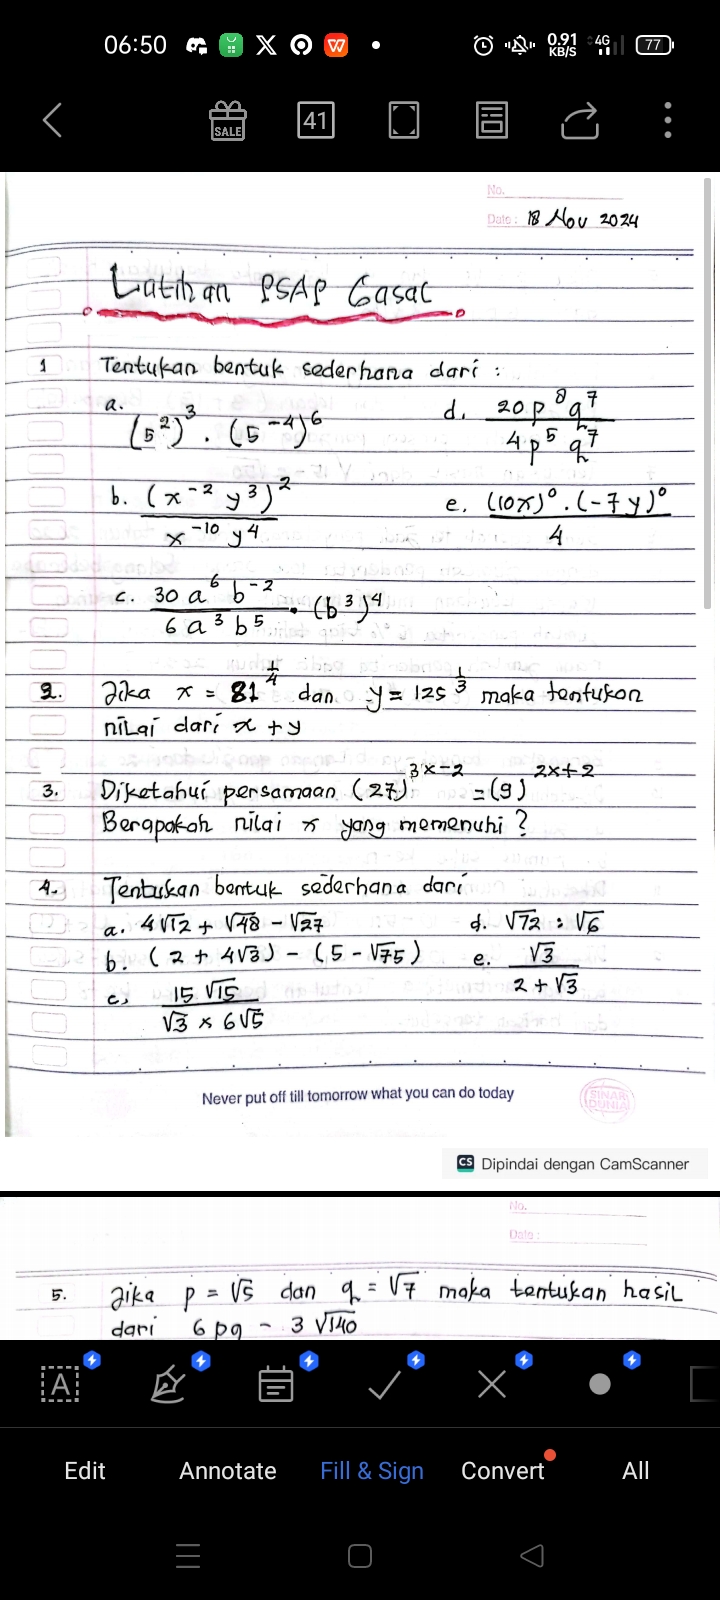 06:50 0.91 KB/S 4G 77
SALE 41
No.
Date: 18 Nov 2024
Latihan PSAP Gasal
1 Tentukan bentuk sederhana dari :
a. (5²)³ . (5⁻⁴)⁶
d. 20p⁸q⁷ / 4p⁵q⁷
b. (x⁻²y³)² / x⁻¹⁰y⁴
e. (10x)⁰ . (-7y)⁰ / 4
c. 30a⁶b⁻² / 6a³b⁵ . (b³)⁴
2. Jika x = 81^1/4 dan y = 125^1/3 maka tentukan
nilai dari x + y
3. Diketahui persamaan (27)^3x-2 = (9)^2x+2
Berapakah nilai x yang memenuhi ?
4. Tentukan bentuk sederhana dari
a. 4√12 + √48 - √27
d. √72 : √6
b. (2 + 4√3) - (5 - √75)
e. √3 / 2 + √3
c. 15√15 / √3 x 6√5
Never put off till tomorrow what you can do today
SINAR DUNIA
CS Dipindai dengan CamScanner
No.
Date :
5. Jika p = √5 dan q = √7 maka tentukan hasil
dari 6pq - 3√140
A
Edit Annotate Fill & Sign Convert All